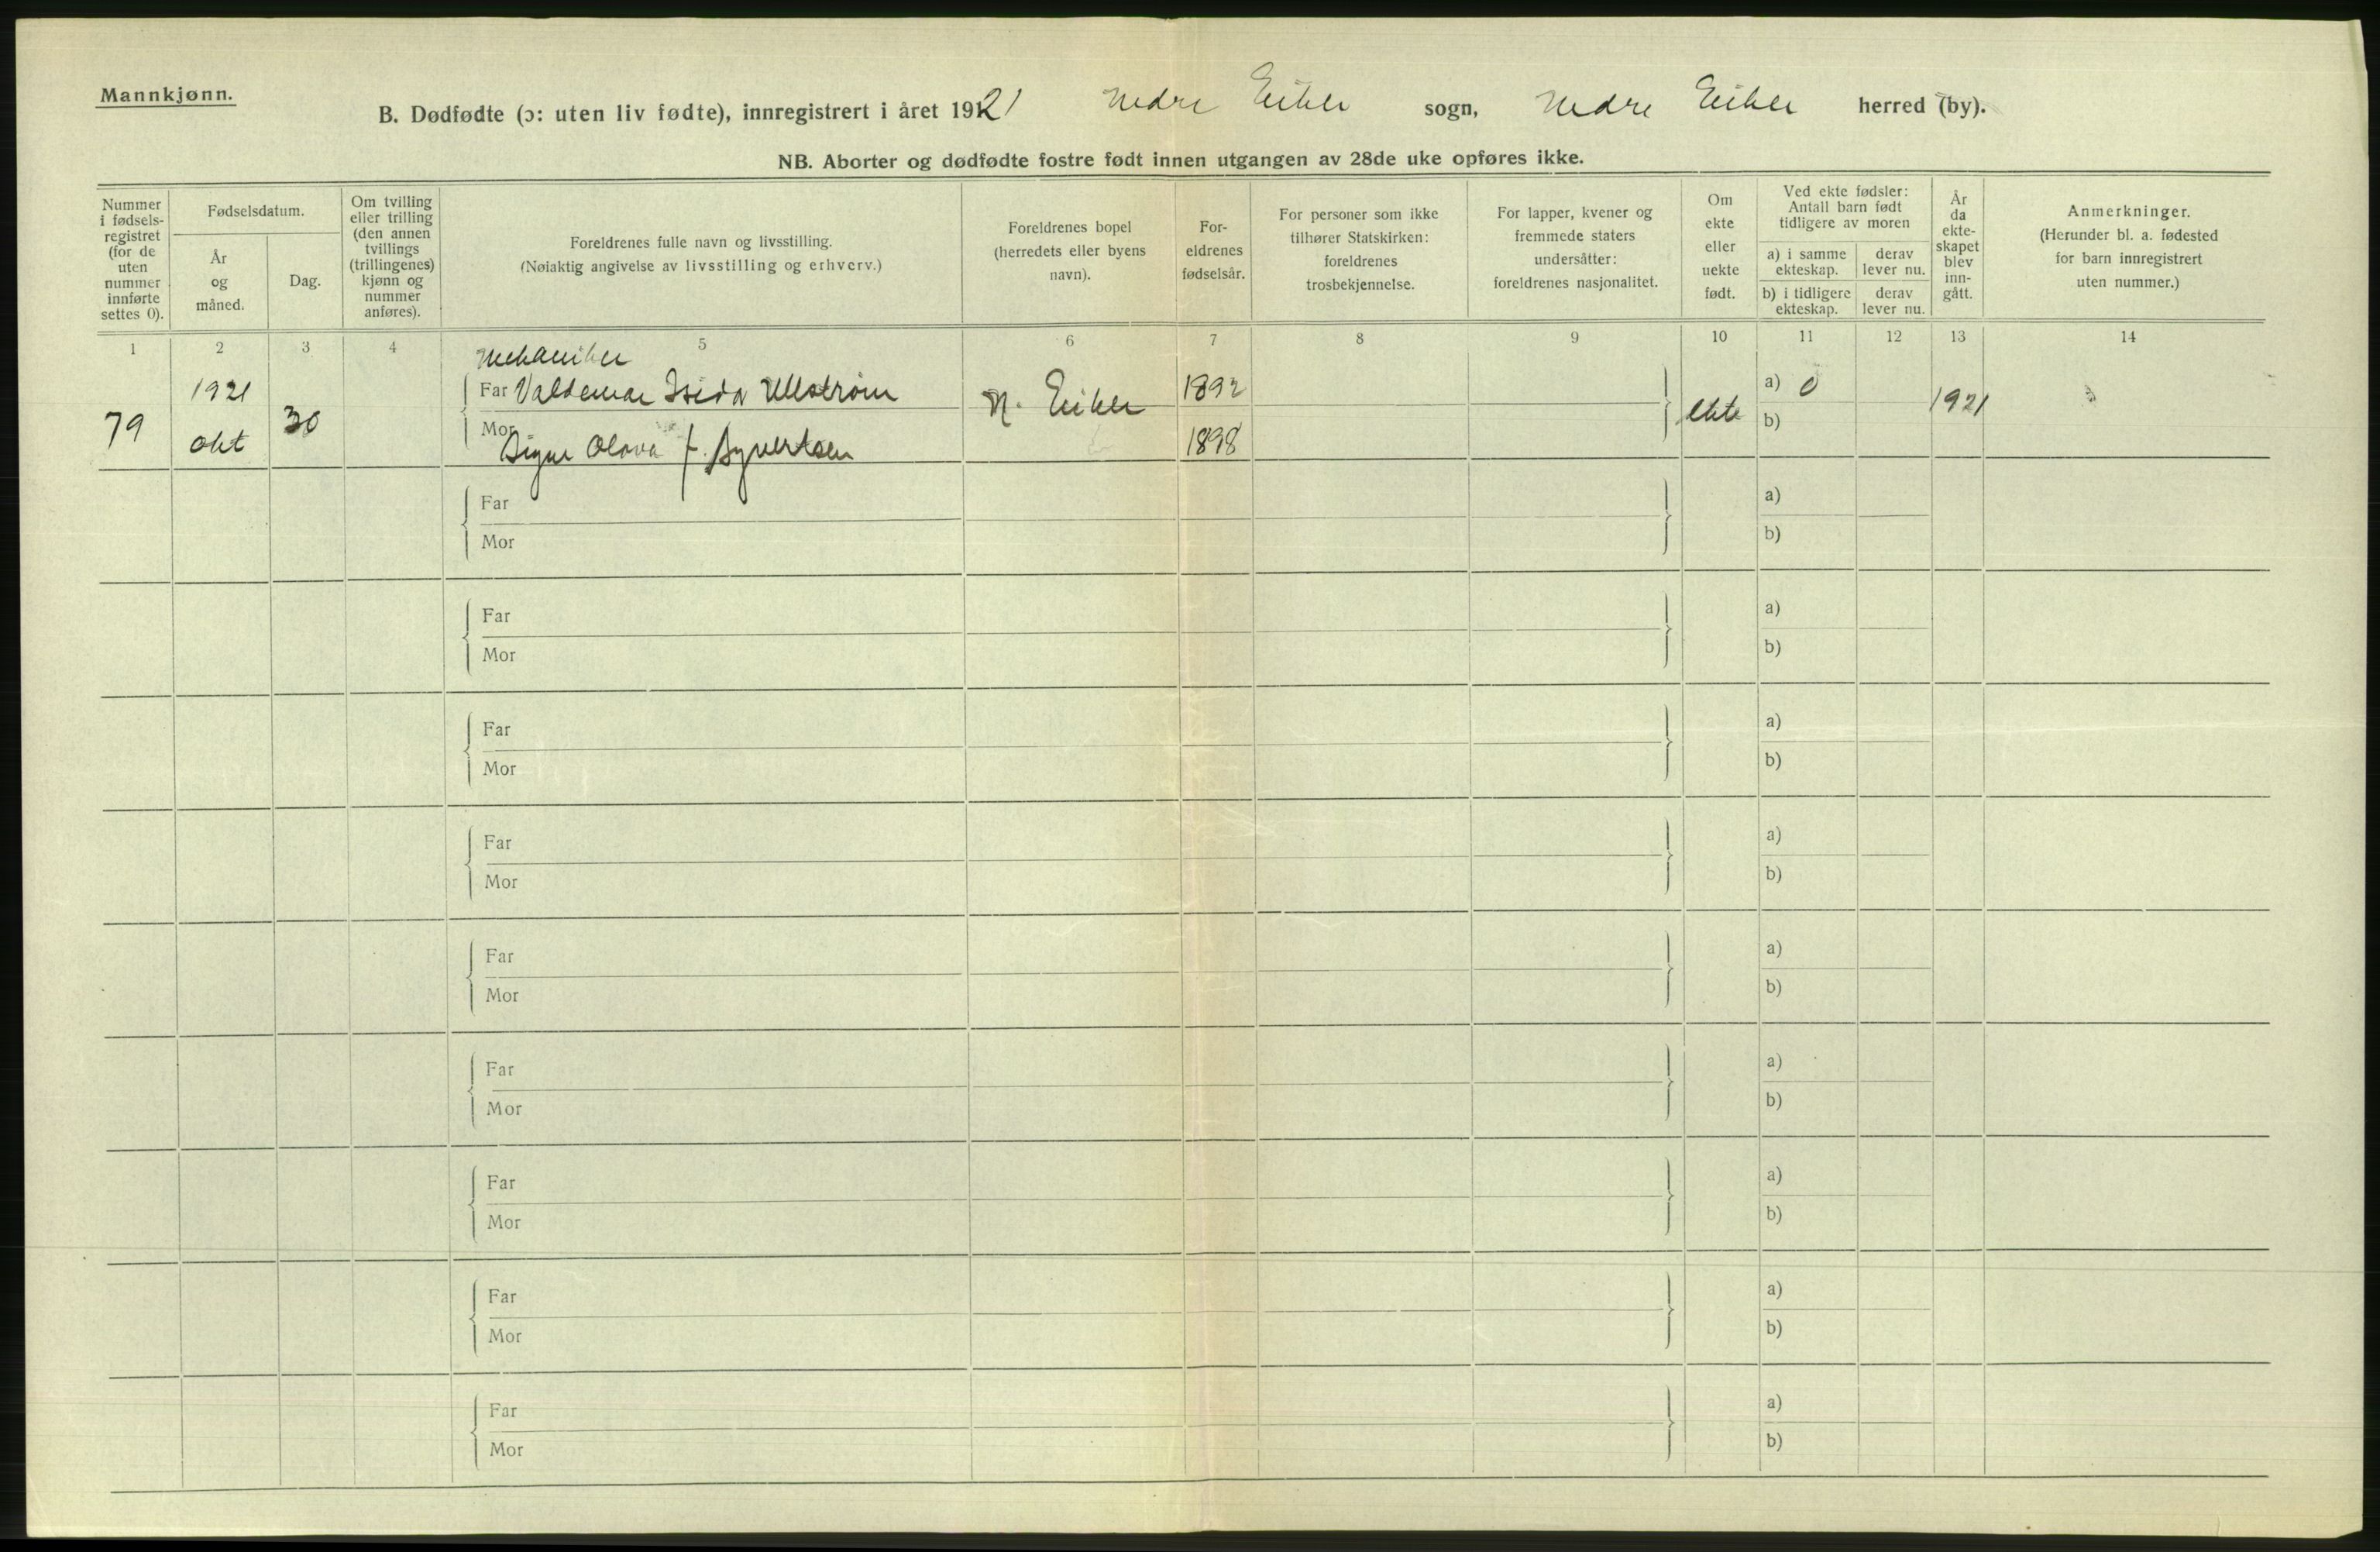 Mannkjønn.
B. Dødfødte (ɔ: uten liv fødte), innregistrert i året 1921 Nedre Eiker sogn, Nedre Eiker herred (by).
NB. Aborter og dødfødte fostre født innen utgangen av 28de uke opføres ikke.
Nummer
i fødsels-
registret
(for de
uten
nummer
innførte
settes 0).
Fødselsdatum.
År
og
måned.
Dag.
Om tvilling
eller trilling
(den annen
tvillings
(trillingenes)
kjønn og
nummer
anføres).
Foreldrenes fulle navn og livsstilling.
(Nøiaktig angivelse av livsstilling og erhverv.)
Foreldrenes bopel
(herredets eller byens
navn).
For-
eldrenes
fødselsår.
For personer som ikke
tilhører Statskirken:
foreldrenes
trosbekjennelse.
For lapper, kvener og
fremmede staters
undersåtter:
foreldrenes nasjonalitet.
Om
ekte
eller
uekte
født.
Ved ekte fødsler:
Antall barn født
tidligere av moren
a) i samme
ekteskap.
derav
lever nu.
b) i tidligere
ekteskap.
derav
lever nu.
År
da
ekte-
skapet
blev
inn-
gått.
Anmerkninger.
(Herunder bl. a. fødested
for barn innregistrert
uten nummer.)
1 2 3 4 5 6 7 8 9 10 11 12 13 14
Mekaniker
79 1921 okt 30 Far Valdemar Ullstrøm N. Eiker 1892 ekte a) 0 1921
Mor Signe Olava f. Syvertsen 1898 b)
Far a)
Mor b)
Far a)
Mor b)
Far a)
Mor b)
Far a)
Mor b)
Far a)
Mor b)
Far a)
Mor b)
Far a)
Mor b)
Far a)
Mor b)
Far a)
Mor b)